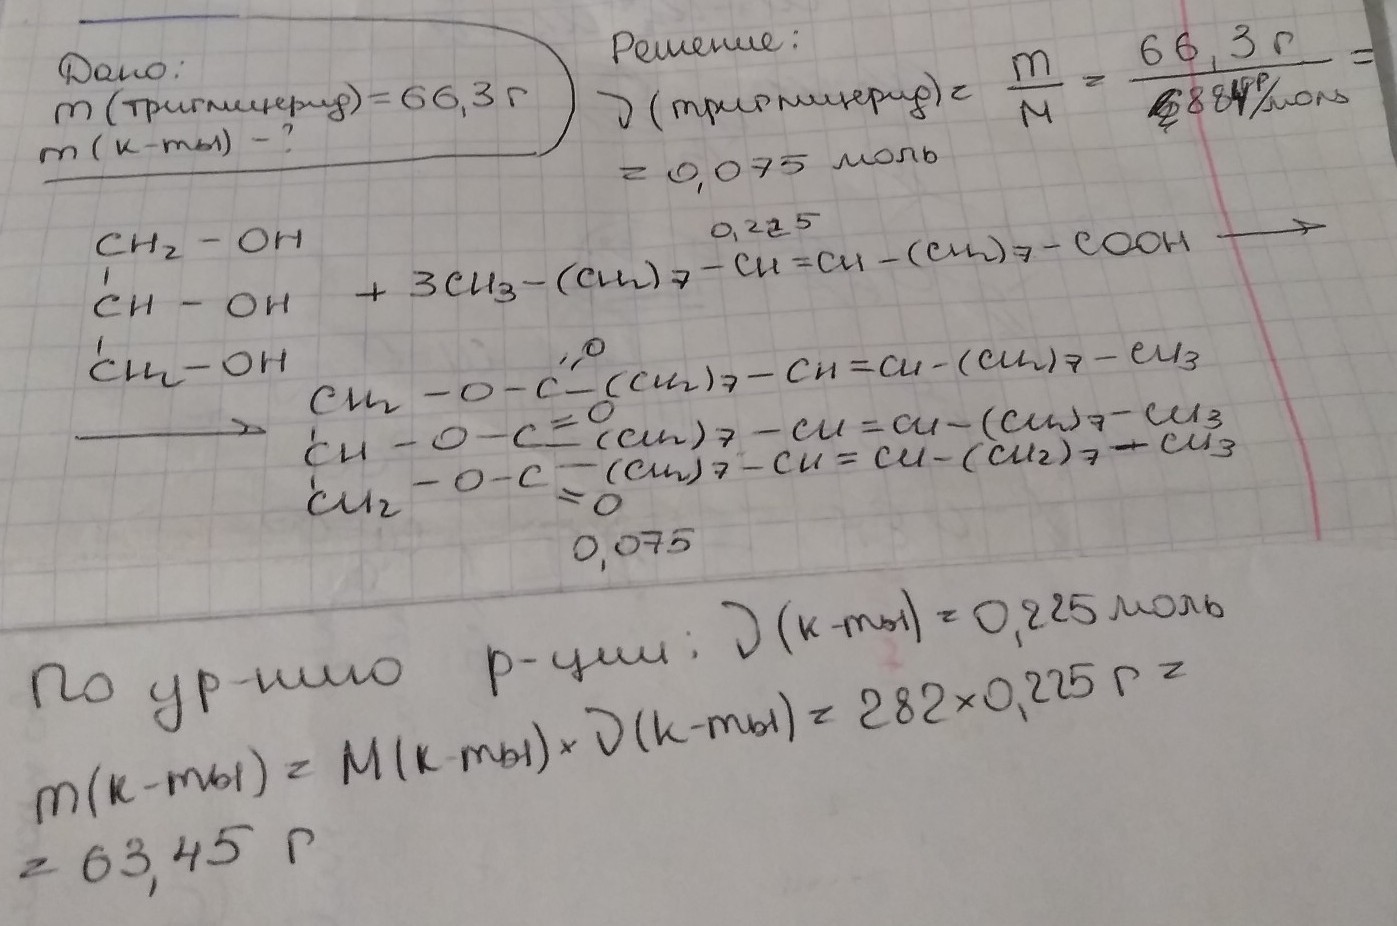 Дано:
m(триглицерид)=66,3г
m(к-ты) - ?
Решение:
ν(триглицерид)= m/M = 66,3г/884г/моль =
= 0,075 моль
0,225
CH2 - OH
CH - OH + 3CH3-(CH2)7-CH=CH-(CH2)7-COOH →
CH2-OH
→ CH2 -O-C=O-(CH2)7-CH=CH-(CH2)7-CH3
CH -O-C=O-(CH2)7-CH=CH-(CH2)7-CH3
CH2 -O-C=O-(CH2)7-CH=CH-(CH2)7-CH3
0,075
По ур-нию р-ции: ν(к-ты)=0,225моль
m(к-ты)= M(к-ты)×ν(к-ты)= 282×0,225 г =
= 63,45 г